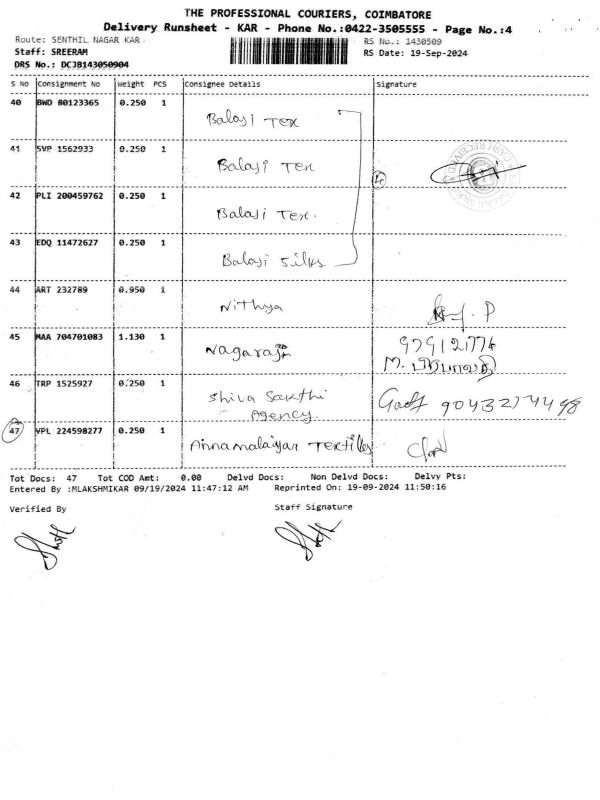 THE PROFESSIONAL COURIERS, COIMBATORE
Delivery Runsheet - KAR - Phone No.:0422-3505555 - Page No.:4
Route: SENTHIL NAGAR KAR RS No.: 1430509
Staff: SREERAM RS Date: 19-Sep-2024
DRS No.: DCJB143050904
S No Consignment No Weight PCS Consignee Details Signature
40 BWD 80123365 0.250 1 Balaji Tex
41 SVP 1562933 0.250 1 Balaji Tex
42 PLI 200459762 0.250 1 Balaji Tex.
43 EDQ 11472627 0.250 1 Balaji Silks
44 ART 232789 0.950 1 Nithya
45 MAA 704701083 1.130 1 Nagaraj
46 TRP 1525927 0.250 1 Shiva Sakthi
Agency
47 VPL 224598277 0.250 1 Annamalaiyar Textiles
Tot Docs: 47 Tot COD Amt: 0.00 Delvd Docs: Non Delvd Docs: Delvy Pts:
Entered By :MLAKSHMIKAR 09/19/2024 11:47:12 AM Reprinted On: 19-09-2024 11:50:16
Verified By Staff Signature